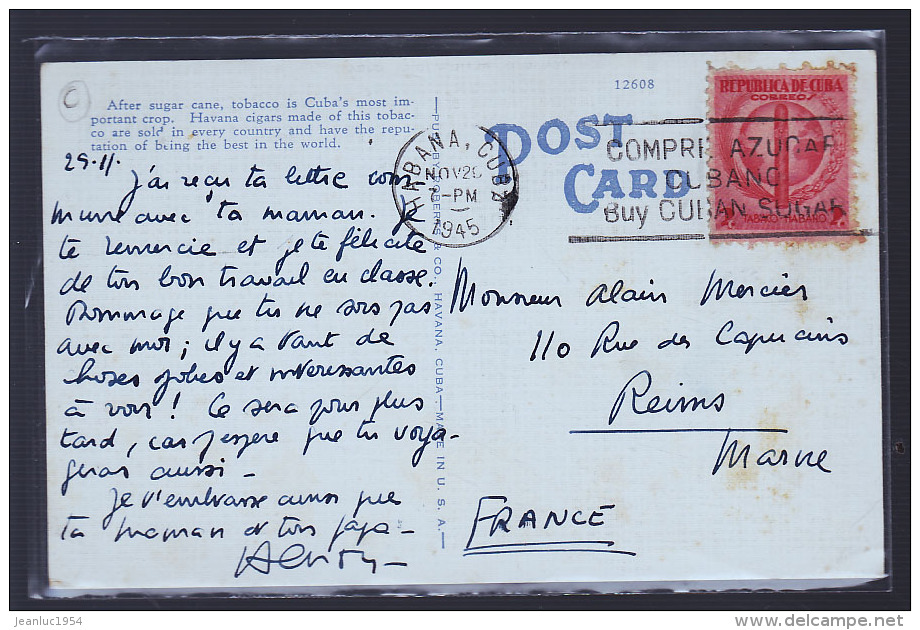 C
After sugar cane, tobacco is Cuba's most im-
portant crop. Havana cigars made of this tobac-
co are sold in every country and have the repu-
tation of being the best in the world.
12608
POST
CARD
HABANA, CUBA
NOV 2
7-PM
1945
COMPRE AZUCAR
CUBANO
Buy CUBAN SUGAR
REPUBLICA DE CUBA
CORREOS
TABACO HABANO
& CO., HAVANA, CUBA.—MADE IN U. S. A.—
29.11.
J'ai reçu ta lettre com
mune avec ta maman. Je
te remercie et je te félicite
de ton bon travail en classe.
Dommage que tu ne sois pas
avec moi; il y a tant de
choses jolies et intéressantes
à voir! Ce sera pour plus
tard, car j'espère que tu voya-
geras aussi -
Je t'embrasse ainsi que
ta maman et ton papa -
Monsieur Alain Mercier
110 Rue des Capucins
Reims
Marne
FRANCE
jeanluc1954
delcampe.net